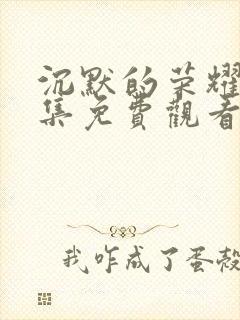 沉默的荣耀
集免費觀看
我咋成了蛋殼